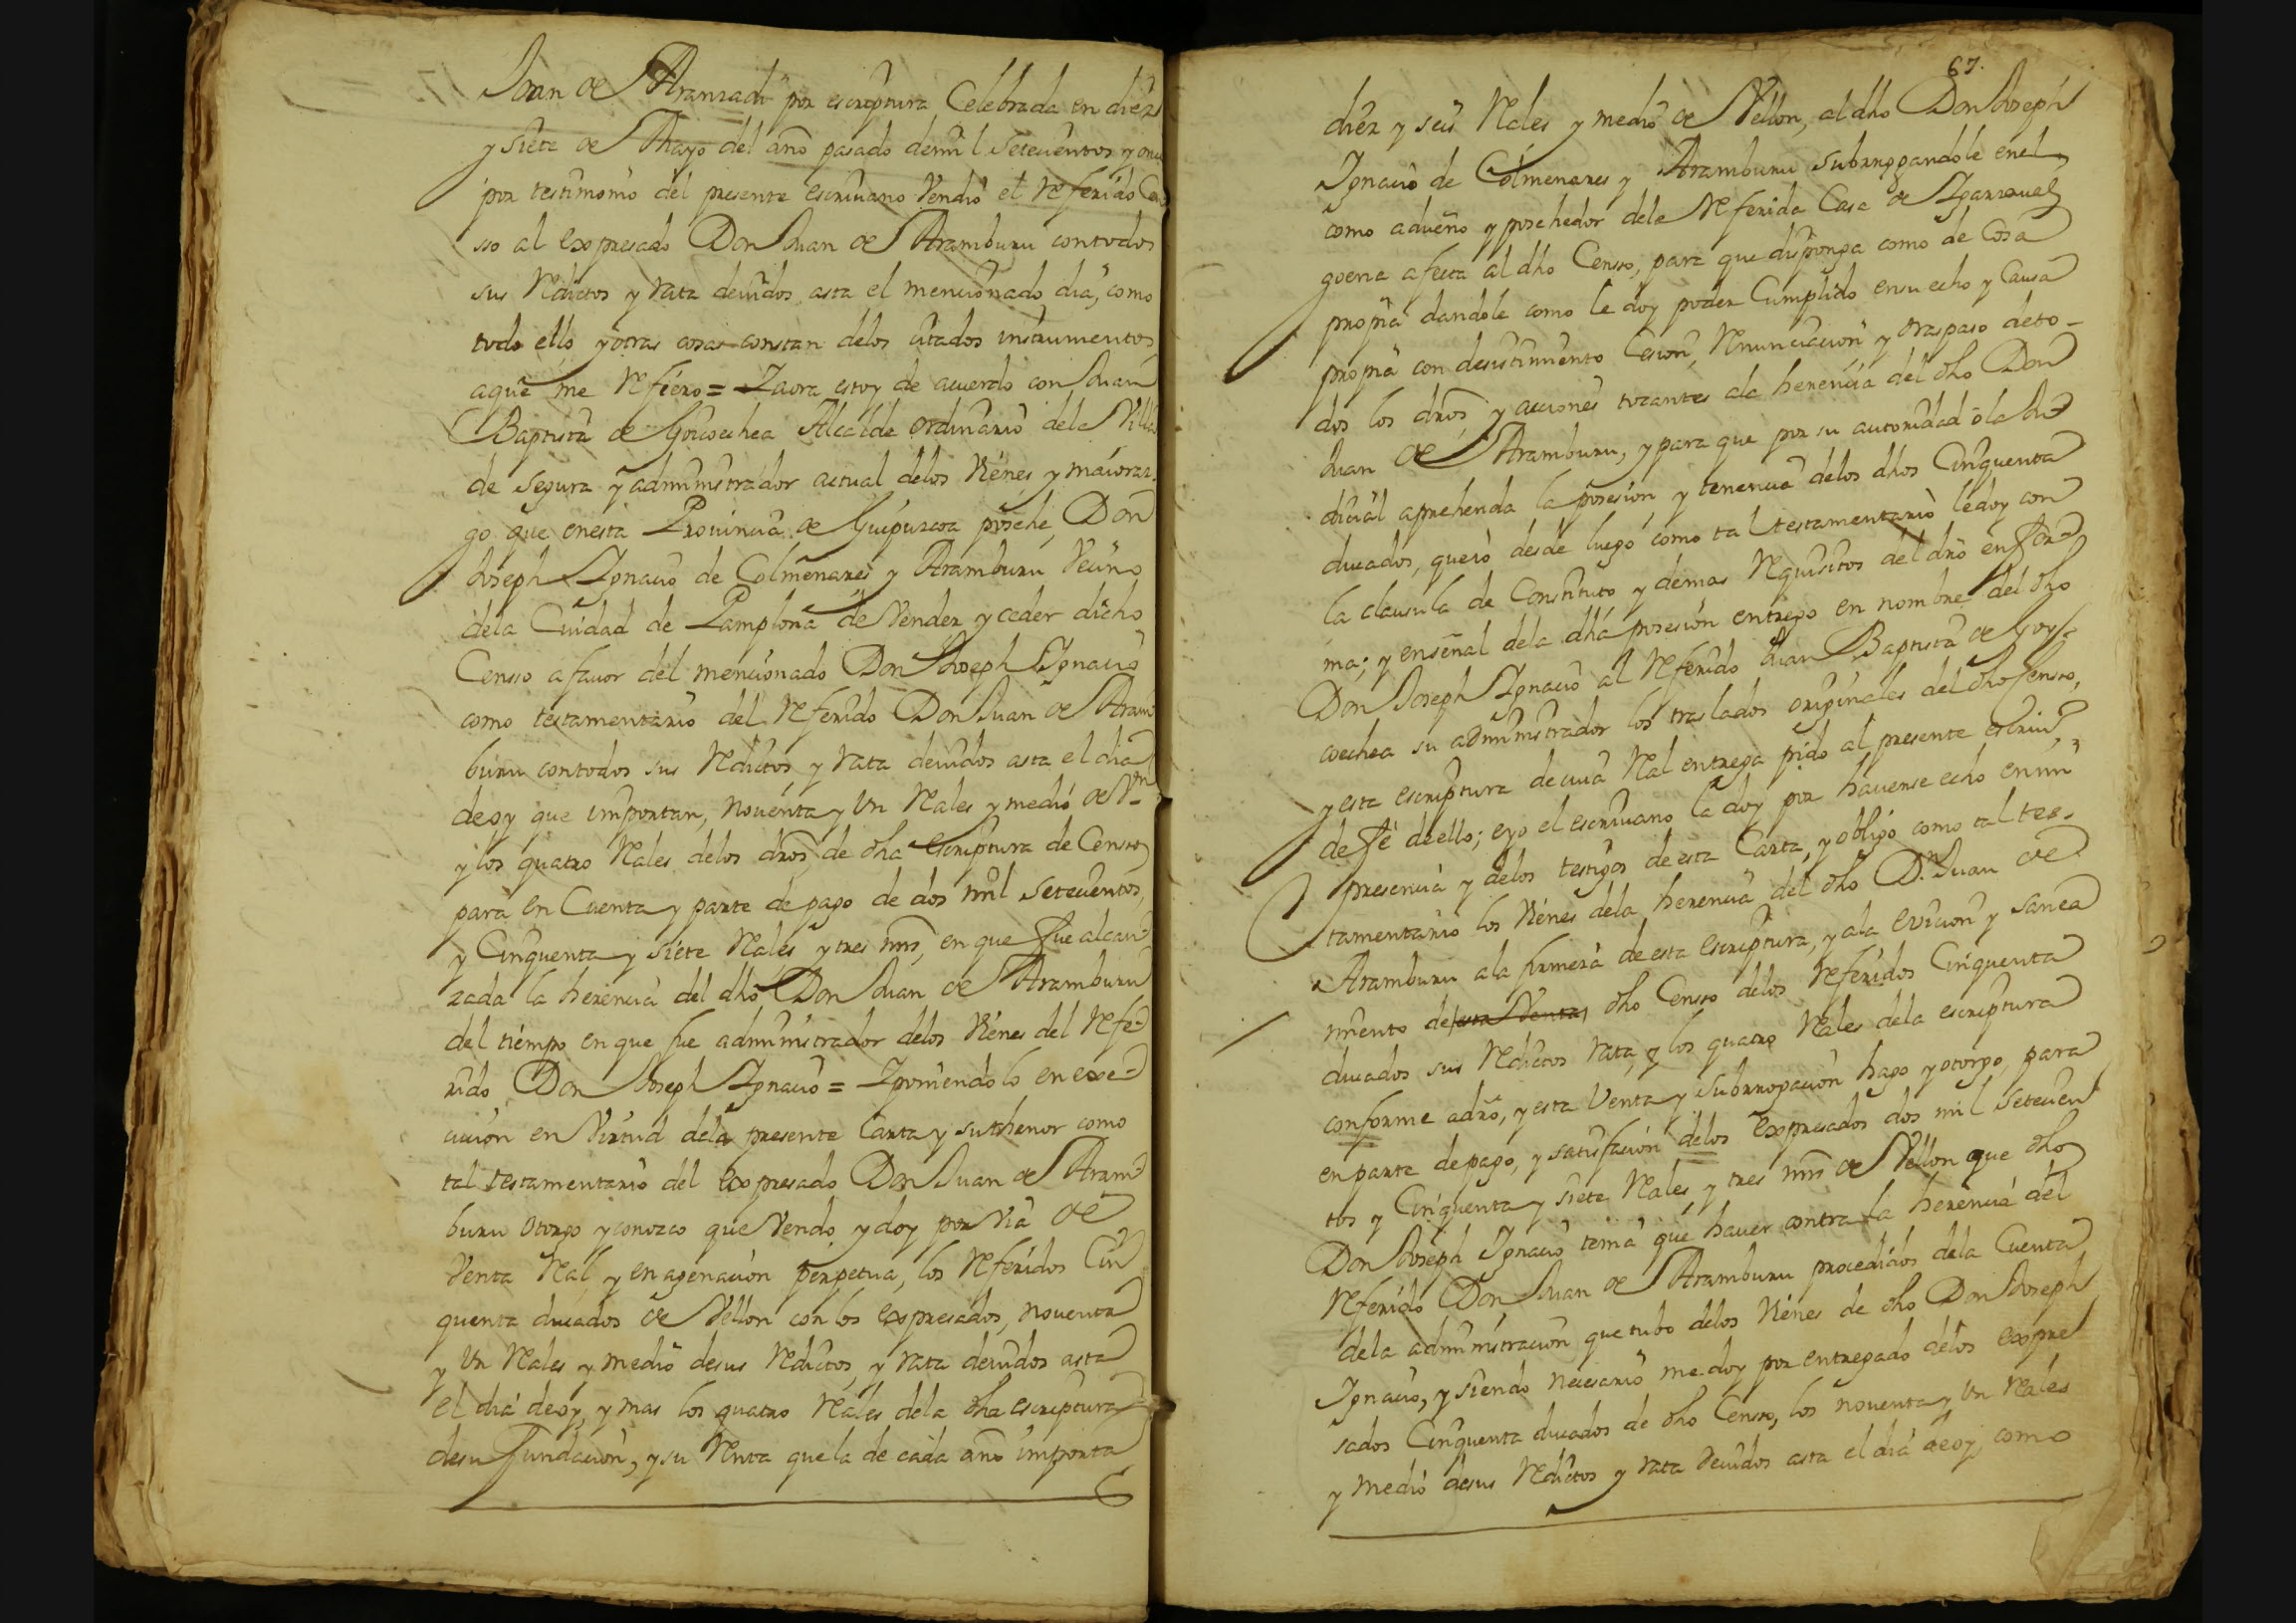 Juan de Aranzadi por escriptura Celebrada en diez
y siete de Mayo del año pasado demil Setecientos y onze
por testimonio del presente escriuano Vendió el Referido Cen
sso al expresado Don Juan de Aramburu contodos
sus Reditos y rata deuidos asta el mencionado dia, como
todo ello y otras cosas constan delos citados instrumentos
aque me Refiero = Y aora estoy de acuerdo con Juan
Baptista de Goicoechea Alcalde ordinario dela Villa
de Segura y administrador actual delos Vienes y maioraz-
go que enesta Prouincia de Guipuzcoa posehe, Don
Joseph Ignacio de Colmenares y Aramburu Vecino
dela Ciudad de Pamplona de Vender y ceder dicho
Censso afauor del mencionado Don Joseph Ignacio
como testamentario del Referido Don Juan de Aram
buru contodos sus Reditos y rata deuidos asta el dia
deoy que importan, Nouenta y Un Rales y medio de Vn
y los quatro Rales delos dros de dha escriptura de Censso
para en Cuenta y parte de pago de dos mil Setecientos,
y Cinquenta y siete Rales y tres mrs, en que fue alcan-
zada la herencia del dho Don Juan de Aramburu
del tiempo en que fue administrador delos Vienes del Refe-
rido Don Joseph Ignacio = Y poniendolo en exe-
cucion en Virtud dela presente Carta y suthenor como
tal testamentario del expresado Don Juan de Aram-
buru otorgo y conozco que Vendo y doy por Via de
Venta Ral y en agenacion perpetua, los Referidos Cin
quenta ducados de Vellon con los expresados, nouenta
y Un Rales y medio desus Reditos, y rata deuidos asta
el dia deoy, y mas los quatro Rales dela dha escriptura
desu Fundacion, y su Renta que la de cada año importa
67.
diez y seis Rales y medio de Vellon, al dho Don Joseph
Ignacio de Colmenares y Aramburu subrrogandole enel,
como adueño y posehedor dela Referida Casa de Ygarzaual
goena afecta al dho Censso, para que disponga como de Cosa
propia dandole como le doy poder Cumplido ensu echo y Causa
propia con desistimiento Cesion, Renunciacion y traspaso deto-
dos los dros, y acciones tocantes ala herencia del dho Don
Juan de Aramburu, y para que por su autoridad ola Ju-
dicial aprehenda la posesion, y tenencia delos dhos Cinquenta
ducados, quero desde luego como tal testamentario ledoy con
la clausula de Constituto y demas Requisitos del dro en for-
ma; y enseñal dela dha posesion entrego en nombre del dho
Don Joseph Ignacio al Referido Juan Baptista de Goy-
coechea su administrador los traslados originales del dho Censso,
y esta escriptura decuia Ral entrega pido al presente escriuo
de fe deello; eyo el escriuano la doy por hauerse echo enmi
presencia y delos testigos de esta Carta, y obligo como tal tes-
tamentario los Vienes dela herencia del dho Dn Juan de
Aramburu ala firmeza de esta escriptura, y ala euicion y sanea
miento de esta Venta, dho Censso delos Referidos Cinquenta
ducados sus Reditos rata, y los quatro Rales dela escriptura
conforme adro, y esta Venta y subrrogacion hago y otorgo, para
en parte de pago, y satisfacion delos expresados dos mil Setecien
tos y Cinquenta y siete Rales y tres mrs de Vellon que dho
Don Joseph Ignacio tenia que hauer contra la herencia del
Referido Don Juan de Aramburu procedidos dela Cuenta
dela administracion que tubo delos Vienes de dho Don Joseph
Ignacio, y siendo necesario me doy por entregado delos expre
sados Cinquenta ducados de dho Censso, los nouenta y Un Rales
y medio desus Reditos y rata deuidos asta el dia deoy, como